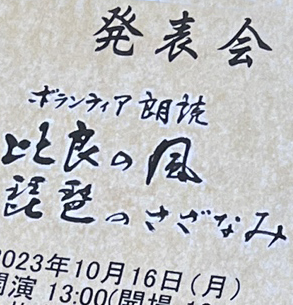 発表会
ボランティア 朗読
比良の風
琵琶のさざなみ
2023年10月16日(月)
開演 13:00(開場